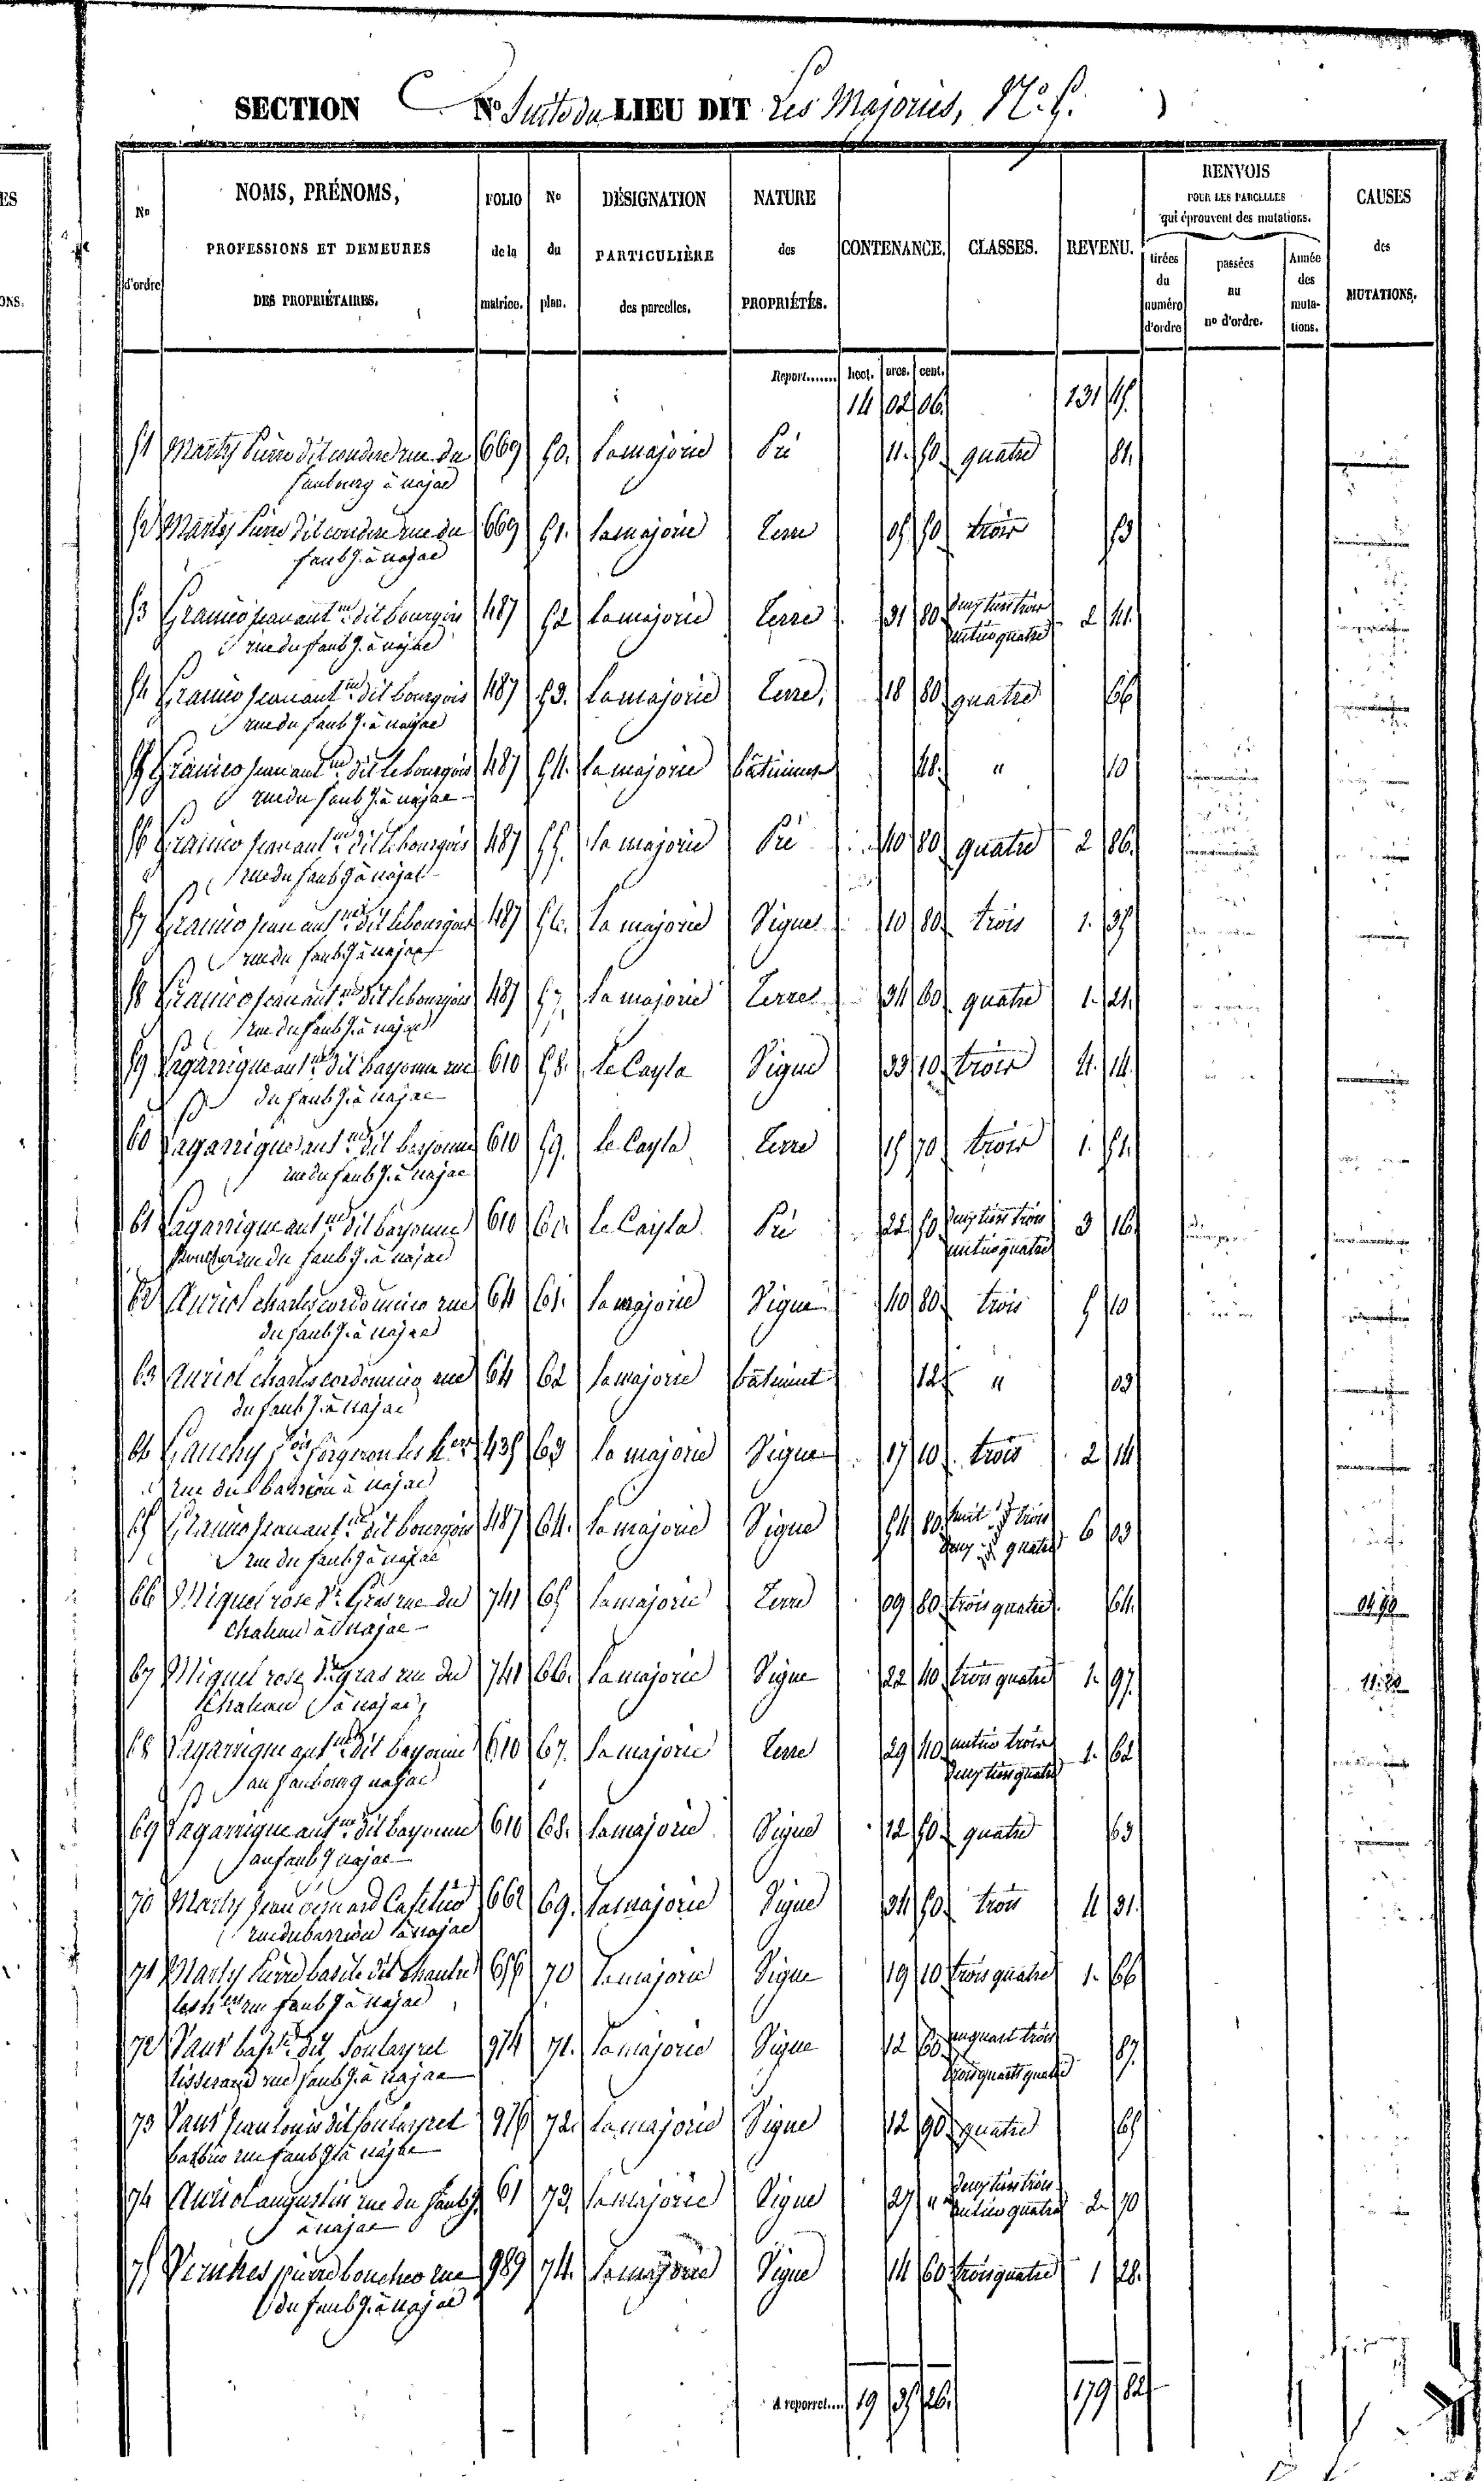 SECTION C No Suite du LIEU DIT Les Majories, N° 5.
ES
ONS.
No d'ordre
NOMS, PRÉNOMS, PROFESSIONS ET DEMEURES DES PROPRIÉTAIRES.
FOLIO de la matrice.
No du plan.
DÉSIGNATION PARTICULIÈRE des parcelles.
NATURE des PROPRIÉTÉS.
CONTENANCE.
CLASSES.
REVENU.
RENVOIS POUR LES PARCELLES qui éprouvent des mutations.
tirées du numéro d'ordre
passées au no d'ordre.
Année des mutations.
CAUSES des MUTATIONS.
Report....... hect. ares. cent.
14 02 06. 131 45.
51 Marty Pierre dit rue du 669 50. Lamajorie Pré 11. 50. quatre 81.
faubourg à najac
52 Marty Pierre dit rue du 669 51. Lamajorie Terre 05 50 trois 53
faubg. à najac
53 jean antne dit bourgois 487 52 Lamajorie Terre 31 80 deux tiers trois 2 41.
rue du faubg. à najac un tiers quatre
54 jean antne dit bourgois 487 53. Lamajorie Terre, 18 80 quatre 66
rue du faubg. à najac
55 jean antne dit le bourgois 487 54. la majorie bâtiment 48. " 10
rue du faubg à najac
56 jean antne dit le bourgois 487 55. la majorie Pré 40 80 quatre 2 86.
rue du faubg à najac
57 jean antne dit le bourgois 487 56. la majorie Vigne 10 80 trois 1. 35
rue du faubg à najac
58 jean antne dit le bourgois 487 57. la majorie Terre 34 60 quatre 1. 21.
rue du faubg. à najac
59 Lagarrigue antne dit bayonne rue 610 58. Le Cayla Vigne 33 10 trois 4. 14.
du faubg. à najac
60 Lagarrigue antne dit bayonne 610 59. le Cayla Terre 15 70 trois 1. 51.
rue du faubg. à najac
61 Lagarrigue antne dit bayonne 610 60. le Cayla Pré 22 50 deux tiers trois 3 16
rue du faubg. à najac un tiers quatre
62 Auriol charles cordonnier rue 64 61. la majorie Vigne 40 80 trois 5 10
du faubg. à najac
63 Auriol charles cordonnier rue 64 62 la majorie bâtiment 12 " 03
du faubg. à najac
64 Gauchy forgeron les hers 435 63 la majorie Vigne 17 10. trois 2 14
rue du barriou à najac
65 jean antne dit bourgois 487 64. la majorie Vigne 54 80. huit trois 6 03
rue du faubg à najac deux quatre
66 Miquel rose Ve Gras rue du 741 65 Lamajorie Terre 09 80 trois quatre 64.
Chateau à Najac
67 Miquel rose Ve gras rue du 741 66. Lamajorie Vigne 22 40 trois quatre 1. 97.
Chateau à najac
68 Lagarrigue antne dit bayonne 610 67. la majorie Terre 29 40 un tiers trois 1. 62
au faubourg najac deux tiers quatre
69 Lagarrigue antne dit bayonne 610 68. Lamajorie Vigne 12 50. quatre 63
au faubg najac
70 Marty jean bernard 662 69. Lamajorie Vigne 34 50. trois 4 31.
rue du barriou à najac
71 Marty Pierre basile dit 656 70 Lamajorie Vigne 19 10 trois quatre 1. 66
les hers rue faubg à najac
72 Vaur bapte dit Soulayrel 974 71. Lamajorie Vigne 12 60. un quart trois 87.
tisserand rue faubg. à najac trois quarts quatre
73 Vaur jean louis dit soulayrel 976 72. Lamajorie Vigne 12 90 quatre 65
rue faubg à najac
74 Auriol augustin rue du faubg. 61 73. Lamajorie Vigne 27 " deux tiers trois 2. 70
à najac un tiers quatre
75 pierre boucher rue 989 74. Lamajorie Vigne 14 60 trois quatre 1 28.
du faubg. à najac
A reporter.... 19 35 26. 179 82